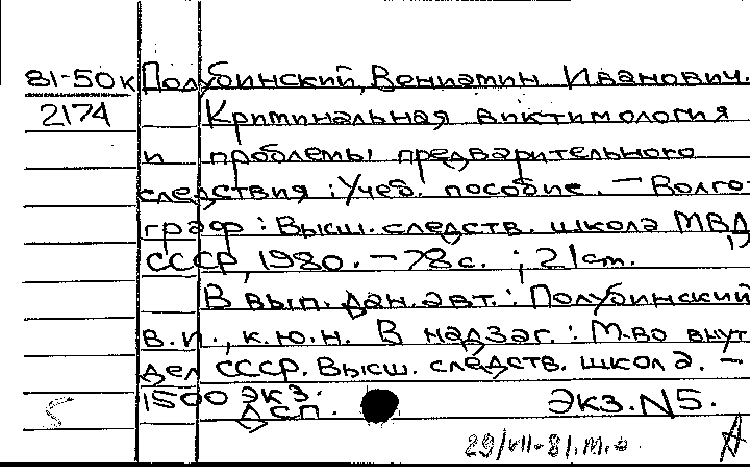 81-50к Полубинский, Вениамин Иванович.
2174 Криминальная виктимология
и проблемы предварительного
следствия : Учеб. пособие. — Волго-
град : Высш. следств. школа МВД
СССР, 1980. — 78 с. ; 21 см.
В вып. дан. авт.: Полубинский
В.И., к.ю.н. В надзаг.: М-во внут.
дел СССР. Высш. следств. школа. —
1500 экз.
ДСП. Экз. N5.
29/VII-81.